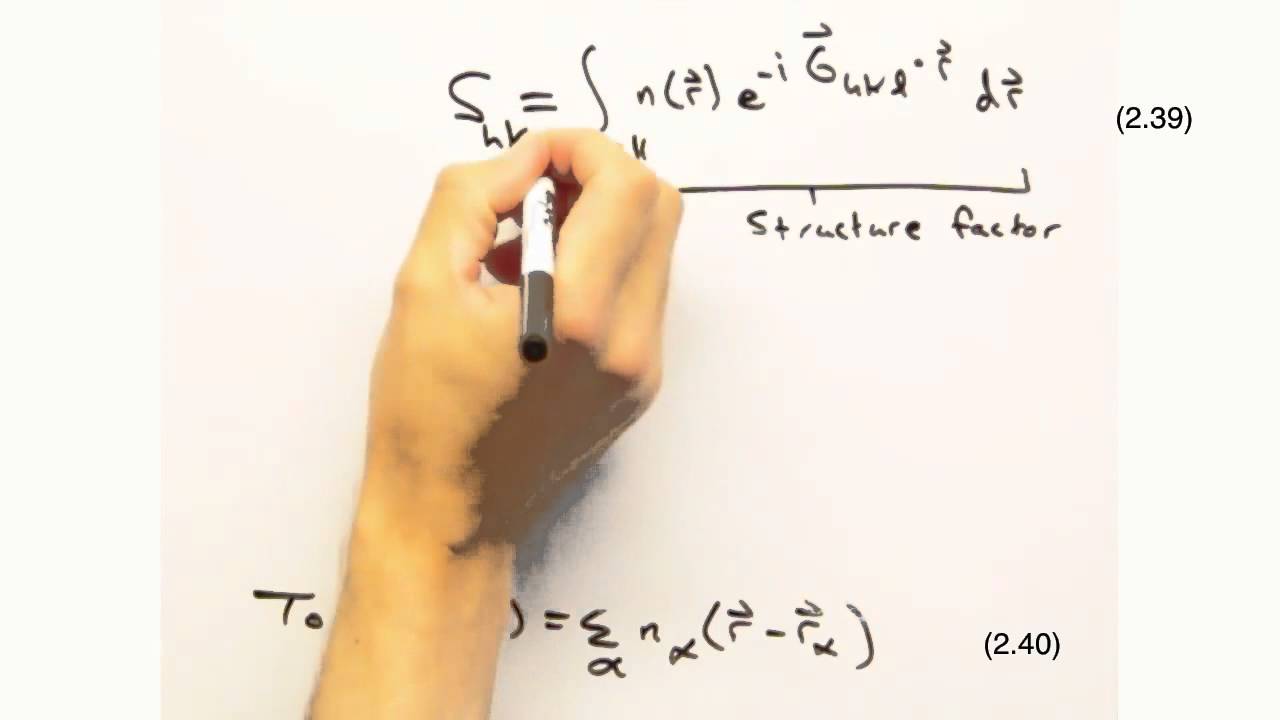 S_hk = ∫ n(r⃗) e^{-i G⃗_{hkl} · r⃗} dr⃗ (2.39)
Structure factor
To ) = Σ_α n_α (r⃗ - r⃗_α) (2.40)